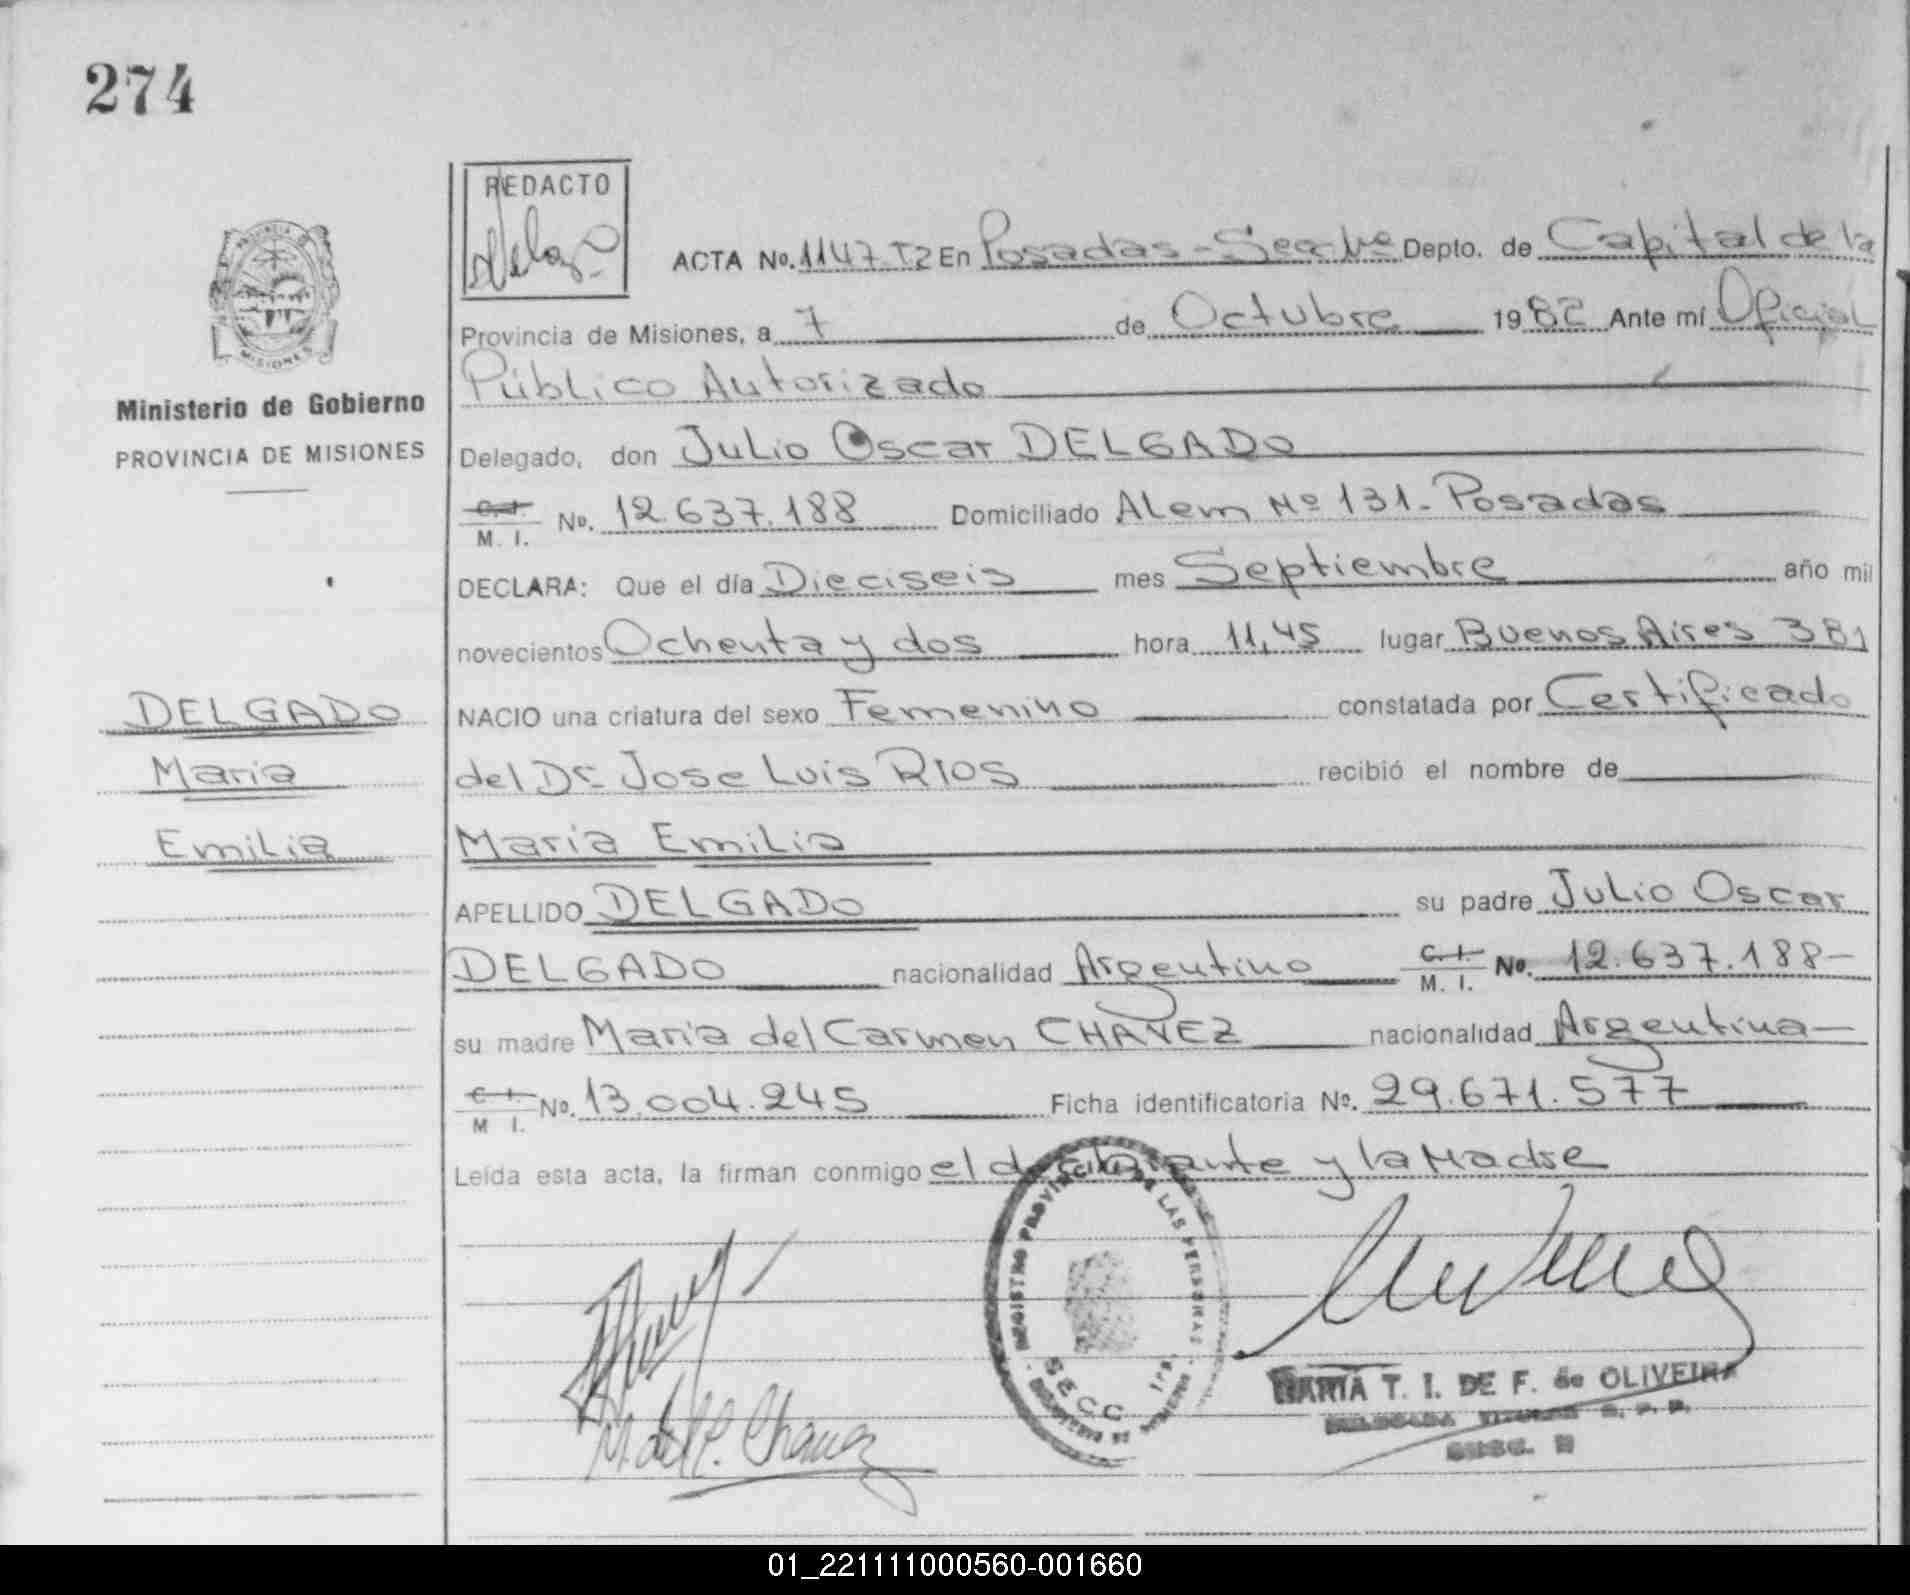 274
REDACTO
ACTA No. 1147 T2 En Posadas - Secc Depto. de Capital de la
Provincia de Misiones, a 7 de Octubre 1982 Ante mí Oficial
Público Autorizado
Ministerio de Gobierno
PROVINCIA DE MISIONES
Delegado, don Julio Oscar DELGADO
C.I. M. I. No. 12.637.188 Domiciliado Alem Nº 131 - Posadas
DECLARA: Que el día Dieciseis mes Septiembre año mil
novecientos Ochenta y dos hora 11,45 lugar Buenos Aires 381
DELGADO
NACIO una criatura del sexo Femenino constatada por Certificado
Maria
del Dr. Jose Luis RIOS recibió el nombre de
Emilia
Maria Emilia
APELLIDO DELGADO su padre Julio Oscar
DELGADO nacionalidad Argentino C.I. M. I. No. 12.637.188-
su madre Maria del Carmen CHAVEZ nacionalidad Argentina-
C.I. M I. No. 13.004.245 Ficha identificatoria No. 29.671.577
Leída esta acta, la firman conmigo el declarante y la Madre
REGISTRO PROVINCIAL DE LAS PERSONAS
SECC
M. del C. Chavez
MARIA T. I. DE F. de OLIVEIRA
01_221111000560-001660